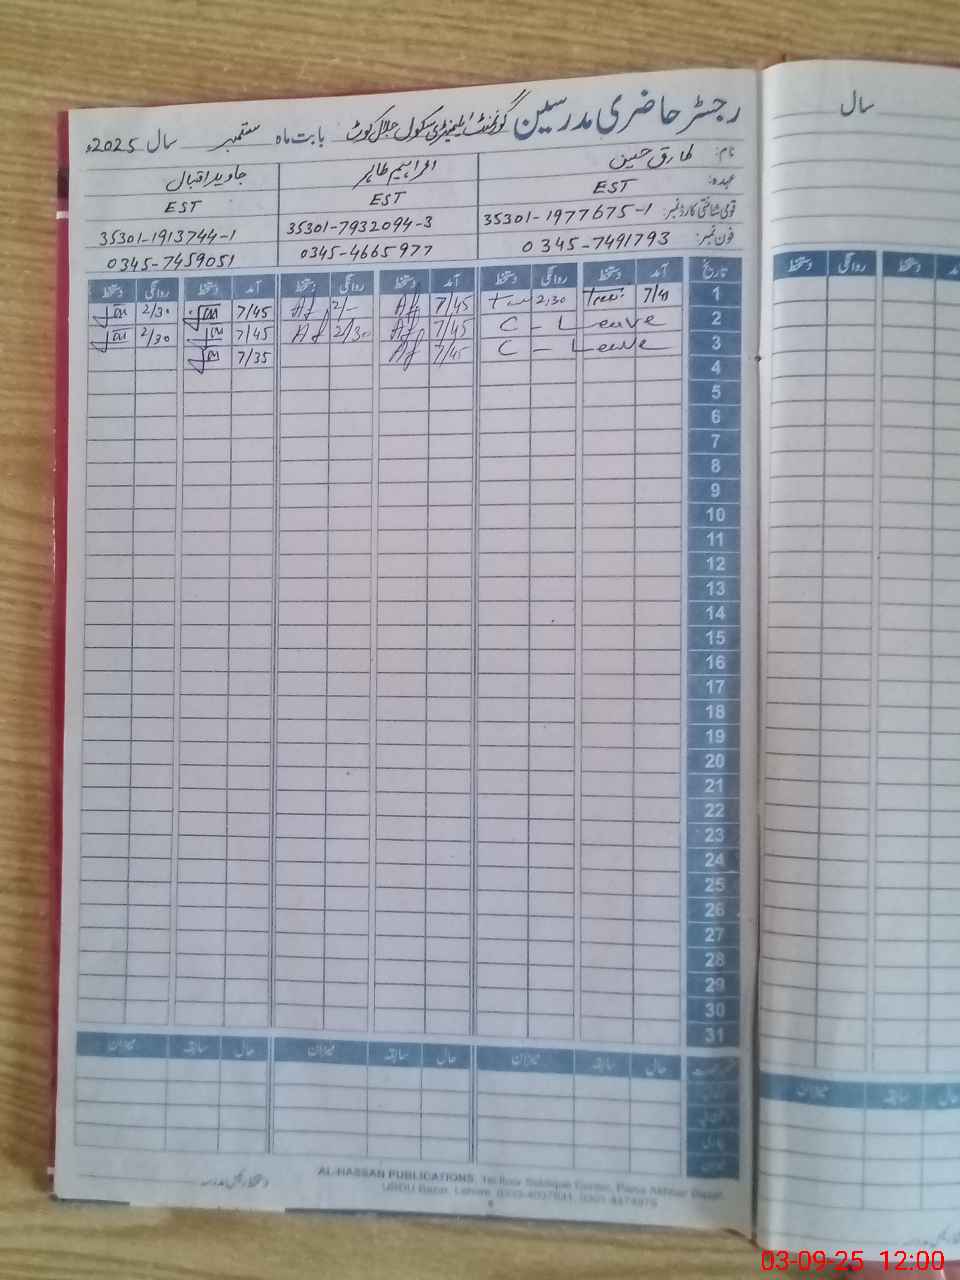 رجسٹر حاضری مدرسین گورنمنٹ ایلیمنٹری سکول جلال کوٹ بابت ماہ ستمبر سال 2025ء
نام: طارق حسین ابراہیم طاہر جاوید اقبال
عہدہ: EST EST EST
قومی شناختی کارڈ نمبر: 35301-1977675-1 35301-7932094-3 35301-1913744-1
فون نمبر: 0345-7491793 0345-4665977 0345-7459051
تاریخ آمد دستخط روانگی دستخط آمد دستخط روانگی دستخط آمد دستخط روانگی دستخط
1 2,30 7/45 Af 2/- Af 7/45 2/30
2 C - Leave 7/45 Af 2/30 Af 7/45 2/30
3 C - Leave 7/45 Af 7/35
4
5
6
7
8
9
10
11
12
13
14
15
16
17
18
19
20
21
22
23
24
25
26
27
28
29
30
31
حال سابقہ میزان حال سابقہ میزان حال سابقہ میزان
AL-HASSAN PUBLICATIONS
سال
دستخط روانگی دستخط
میزان سابقہ حال
03-09-25 12:00